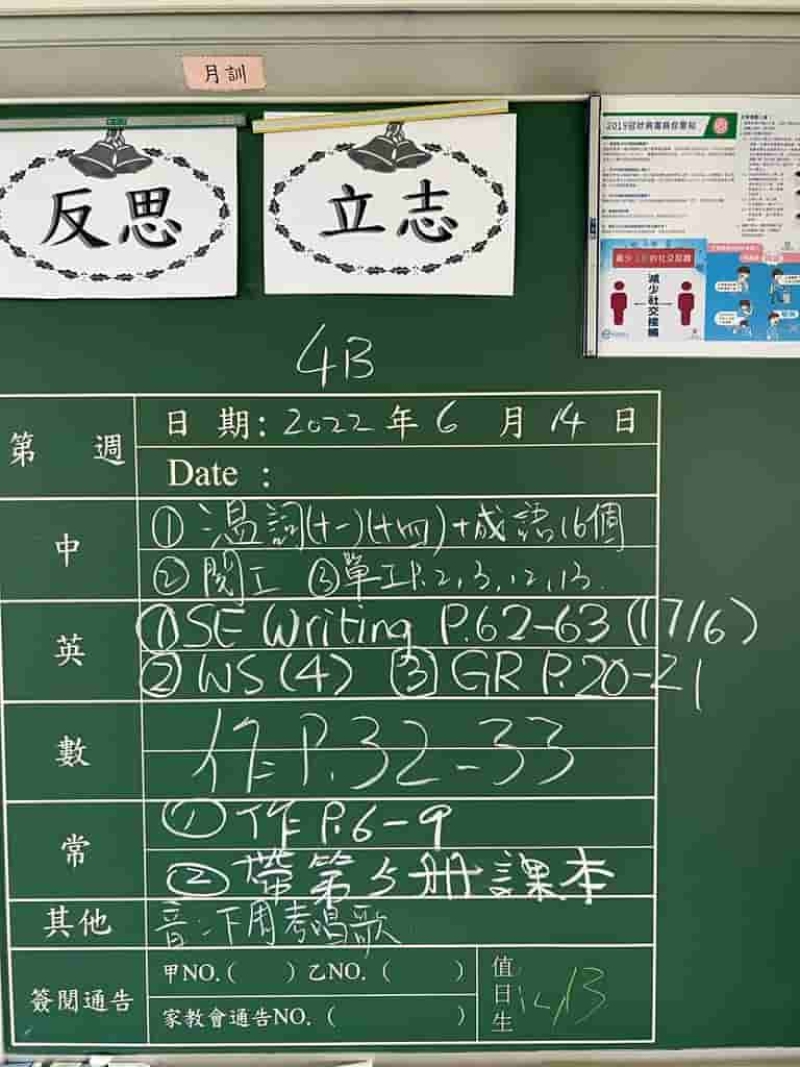 月訓
反思
立志
2019冠狀病毒病你要知
減少社交接觸
4B
第 週
日 期: 2022 年 6 月 14 日
Date :
中
① 溫詞(十一)(十四)+成語16個
② 閱工 ③單工P.2,3,12,13.
英
①SE Writing P.62-63 (17/6)
② WS(4) ③ GR P.20-21
數
作P.32-33
常
① 作 P.6-9
② 帶第5册課本
其他
音:下周考唱歌
簽閱通告
甲NO.( ) 乙NO. ( )
家教會通告NO. ( )
值日生